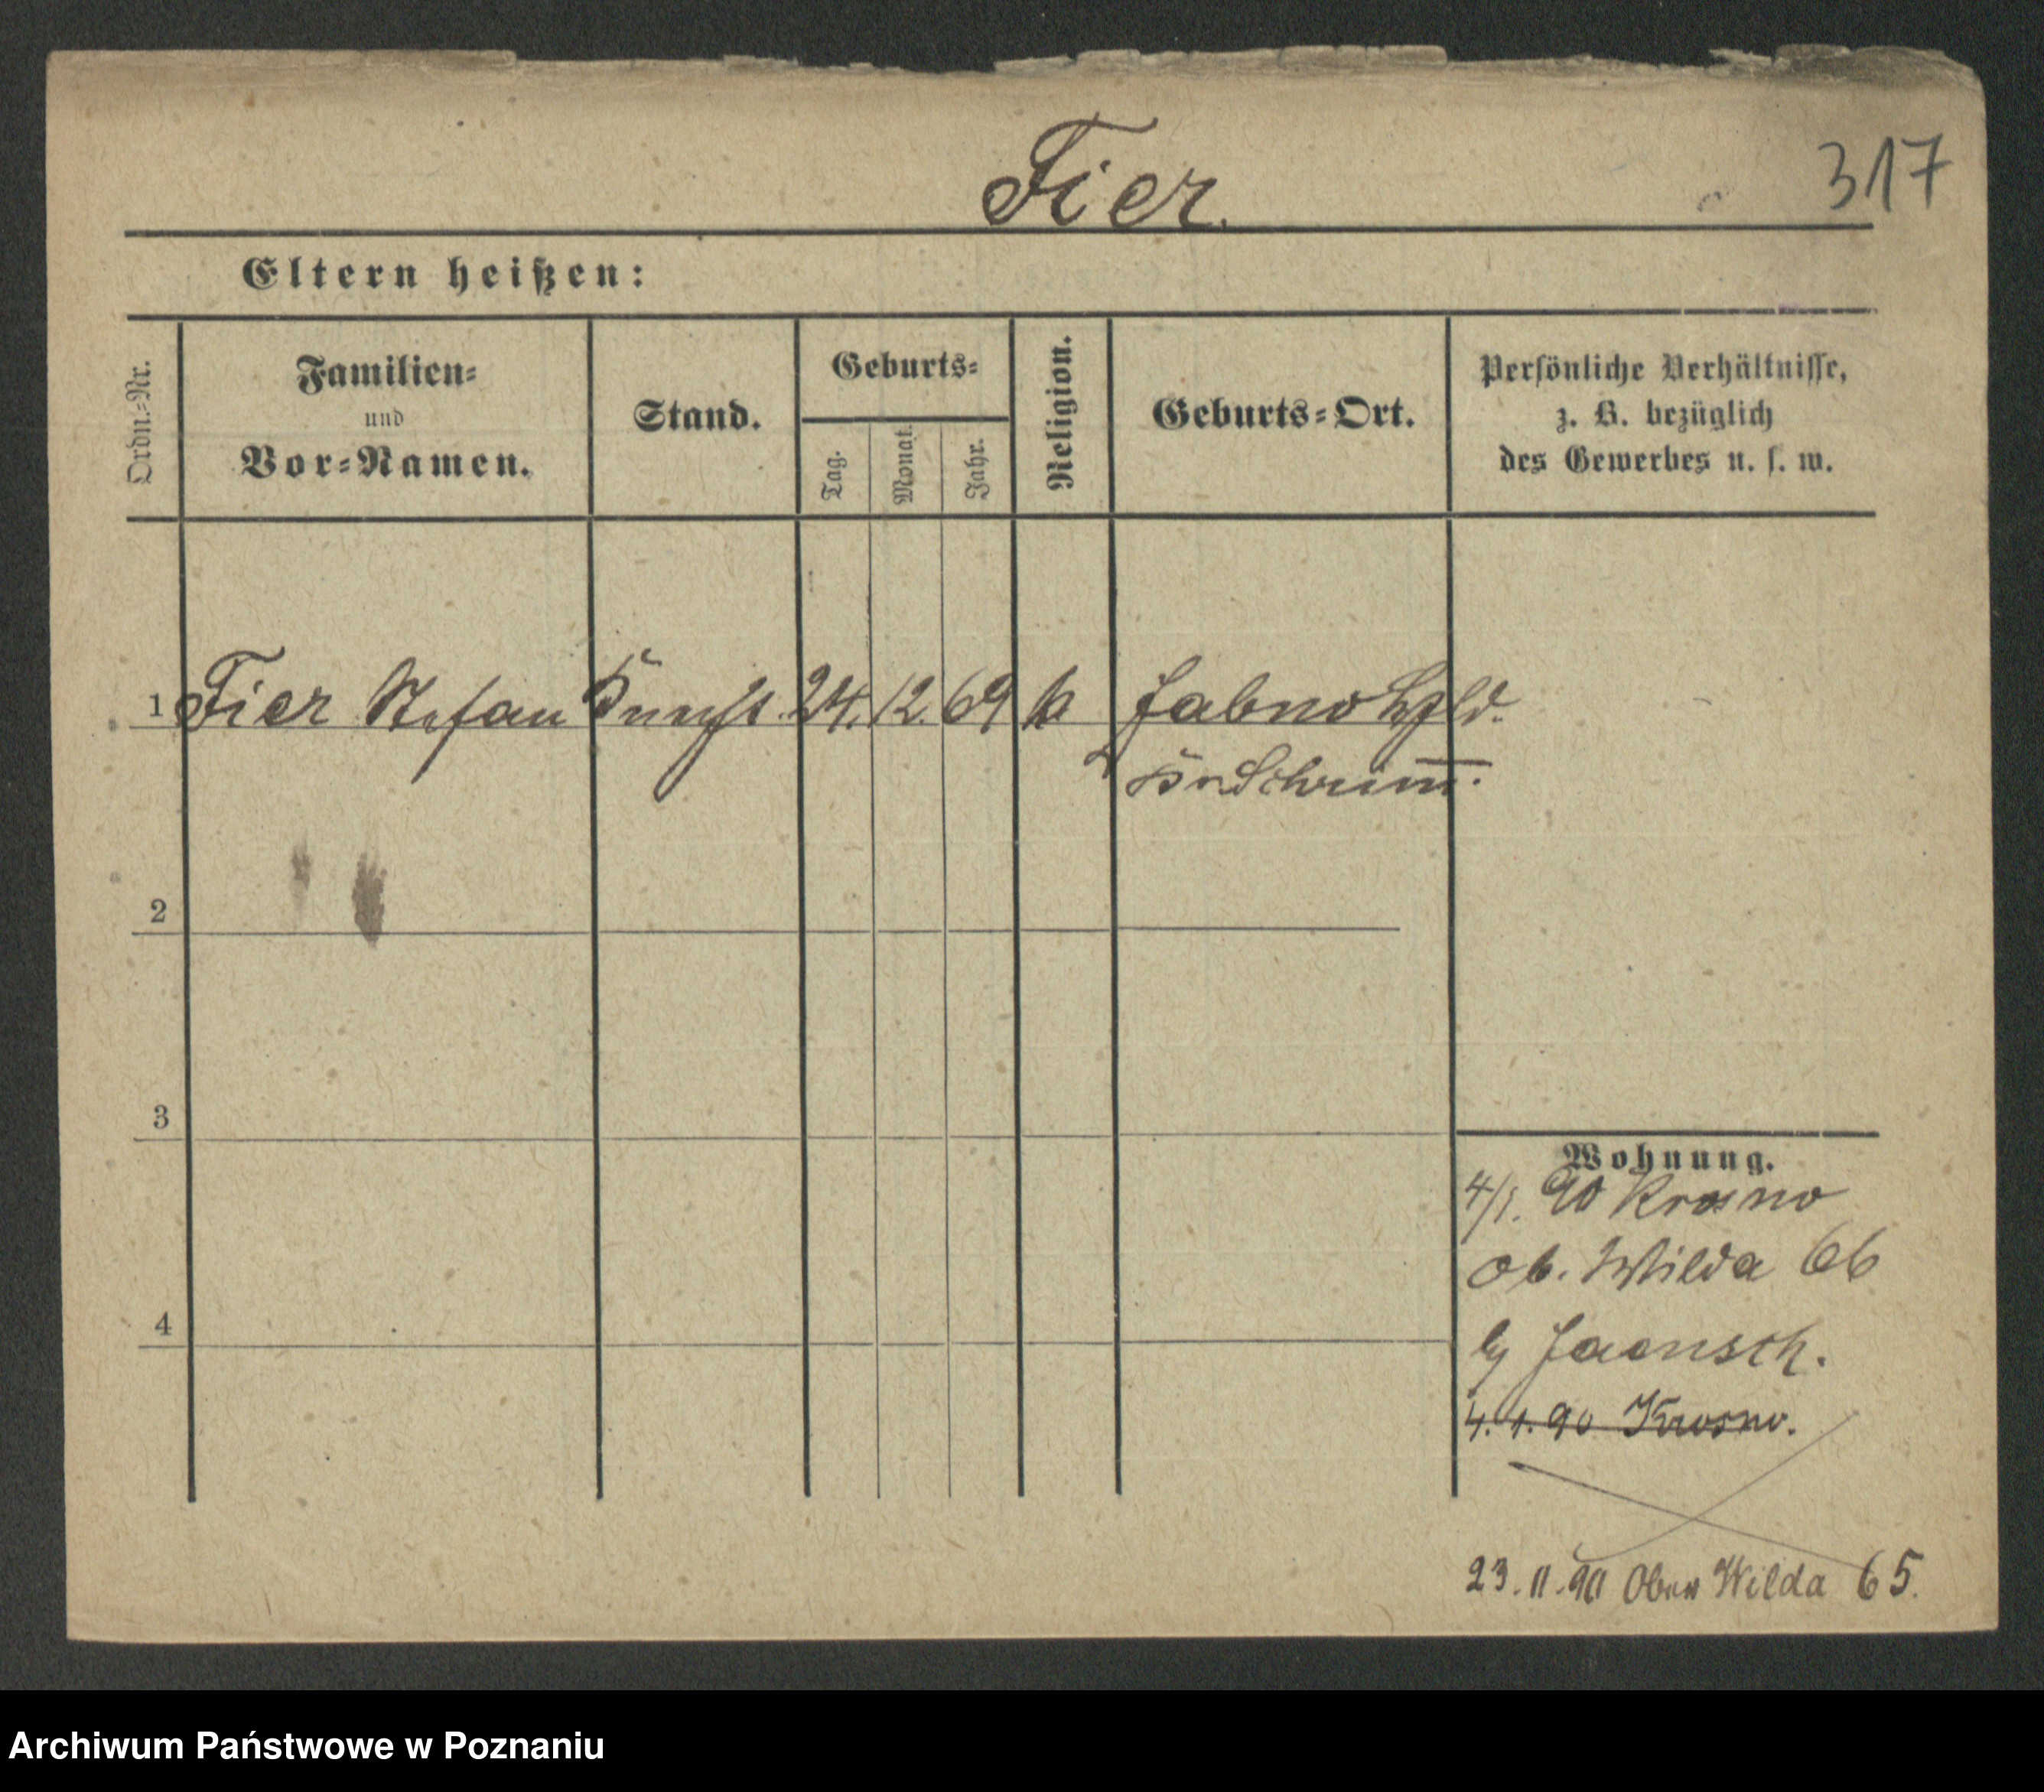 Fier.
317
Eltern heißen:
Ordn.-Nr.
Familien-
und
Vor-Namen.
Stand.
Geburts-
Tag.
Monat.
Jahr.
Religion.
Geburts-Ort.
Persönliche Verhältnisse,
z. B. bezüglich
des Gewerbes u. s. w.
1 Fier Stefan Knecht 24. 12. 69 k
Kr Schrimm.
2
3
4
Wohnung.
4/1. 90 Krosno
Ob. Wilda 66
Jaensch.
4. 1. 90 Krosno.
23. 11. 90 Ober Wilda 65.
Archiwum Państwowe w Poznaniu